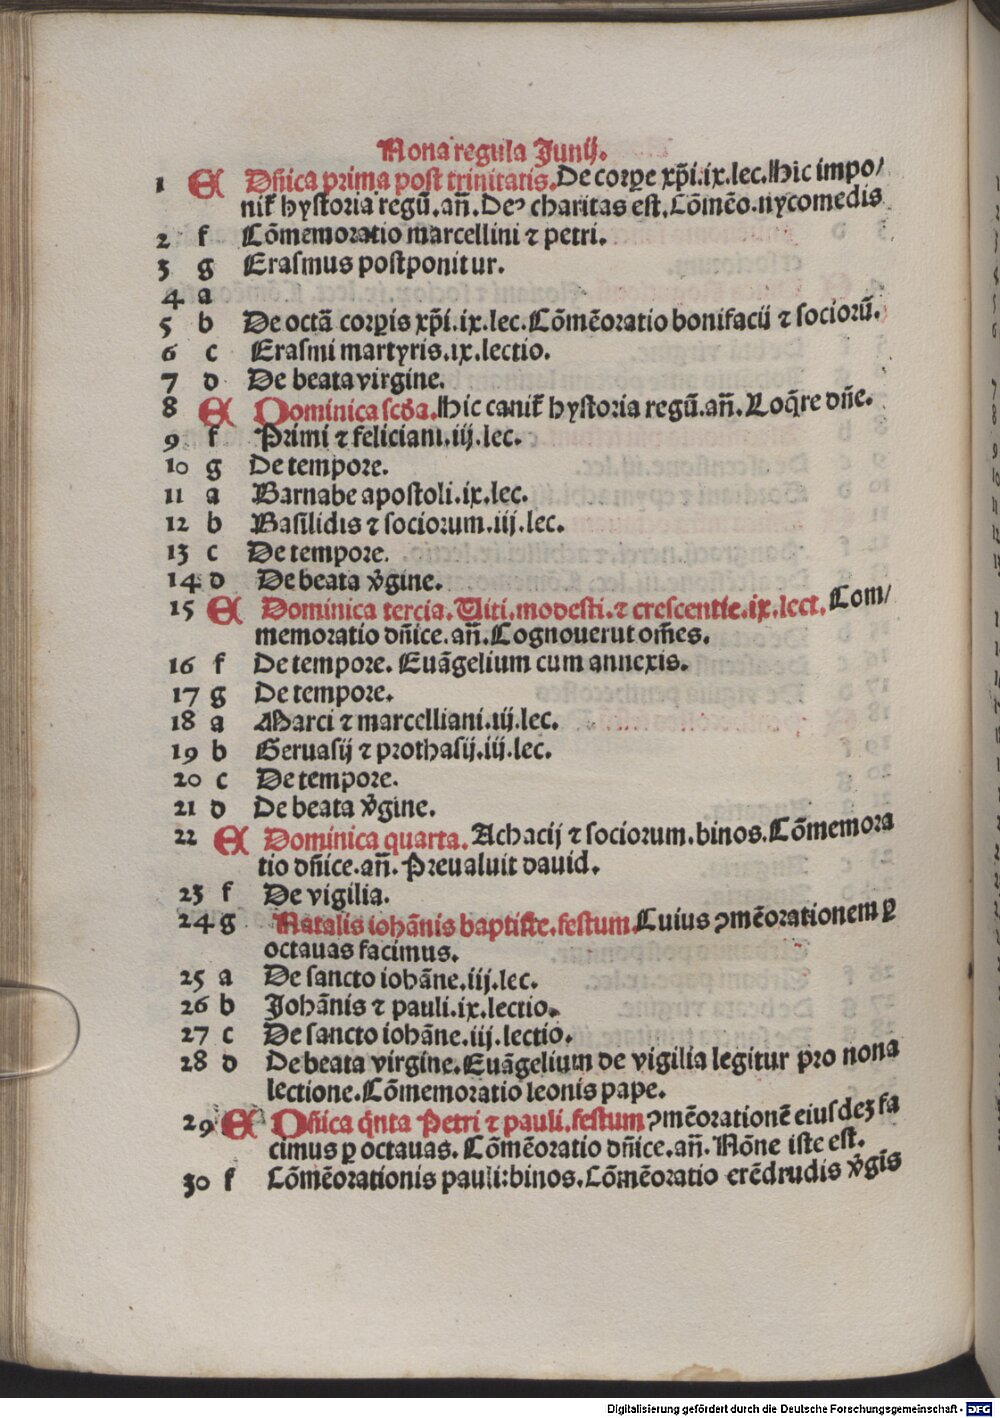 Nona regula Junij.
1 E Dñica prima post trinitatis. De corpe xp̃i.ix.lec. Hic impo/
nit̃ hystoria regũ.añ. Deꝰ charitas est. Cõmẽo.nycomedis
2 f Cõmemoratio marcellini ⁊ petri.
3 g Erasmus postponitur.
4 a
5 b De octã corpis xp̃i.ix.lec. Cõmẽoratio bonifacij ⁊ sociorũ.
6 c Erasmi martyris.ix.lectio.
7 d De beata virgine.
8 E Dominica scďa. Hic canit̃ hystoria regũ.añ. Loq̃re dñe.
9 f Primi ⁊ feliciani.iij.lec.
10 g De tempore.
11 a Barnabe apostoli.ix.lec.
12 b Basilidis ⁊ sociorum.iij.lec.
13 c De tempore.
14 d De beata v̾gine.
15 E Dominica tercia. Viti.modesti.⁊ crescentie.ix.lect. Com/
memoratio dñice.añ. Cognouerut om̃es.
16 f De tempore. Euãgelium cum annexis.
17 g De tempore.
18 a Marci ⁊ marcelliani.iij.lec.
19 b Geruasij ⁊ prothasij.iij.lec.
20 c De tempore.
21 d De beata v̾gine.
22 E Dominica quarta. Achacij ⁊ sociorum.binos. Cõmemora
tio dñice.añ. Preualuit dauid.
23 f De vigilia.
24 g Natalis iohãnis baptiste.festum. Cuius ꝯmẽorationem ꝑ
octauas facimus.
25 a De sancto iohãne.iij.lec.
26 b Johãnis ⁊ pauli.ix.lectio.
27 c De sancto iohãne.iij.lectio.
28 d De beata virgine. Euãgelium de vigilia legitur pro nona
lectione. Cõmemoratio leonis pape.
29 E Dñica q̃nta Petri ⁊ pauli.festum ꝯmẽorationẽ eiusdeꝫ fa
cimus ꝑ octauas. Cõmẽoratio dñice.añ. Nõne iste est.
30 f Cõmẽorationis pauli:binos. Cõmẽoratio erẽdrudis v̾gis
Digitalisierung gefördert durch die Deutsche Forschungsgemeinschaft - DFG